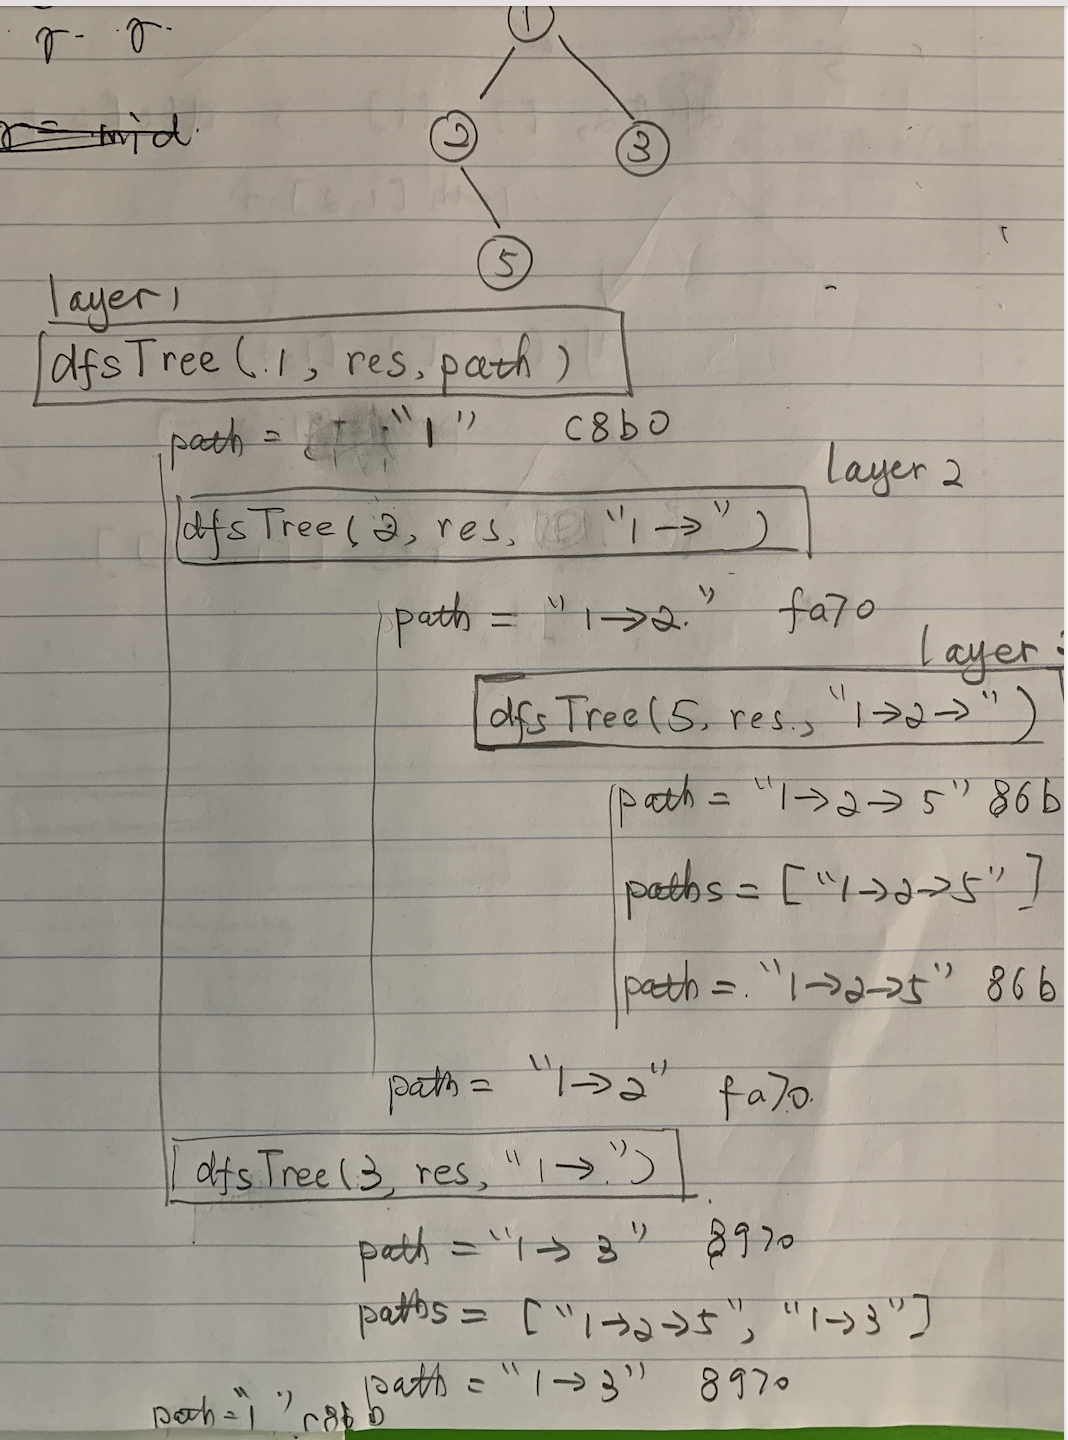 1
2
3
5
mid
layer 1
dfsTree(1, res, path)
path = "1" c8b0
layer 2
dfsTree(2, res, "1→")
path = "1→2" fa70
layer
dfsTree(5, res, "1→2→")
path = "1→2→5" 86b
paths = ["1→2→5"]
path = "1→2→5" 86b
path = "1→2" fa70
dfsTree(3, res, "1→")
path = "1→3" 8970
paths = ["1→2→5", "1→3"]
path = "1→3" 8970
path = "1"